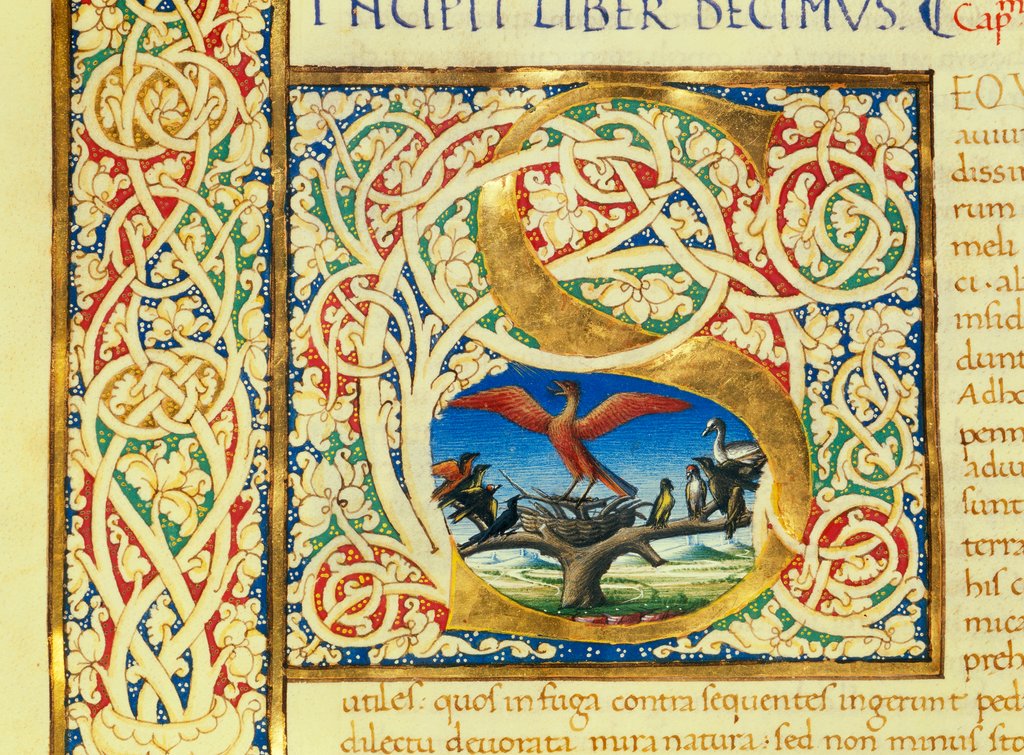 INCIPIT LIBER DECIMVS. Capm
S EQV
auiu
dissi
rum
meli
ci. al
insid
dunt
Adho
penn
adun
sunt
terra
his c
mica
preh
utiles: quos in fuga contra sequentes ingerunt ped
dilectu deuorata mira natura: sed non minus sto